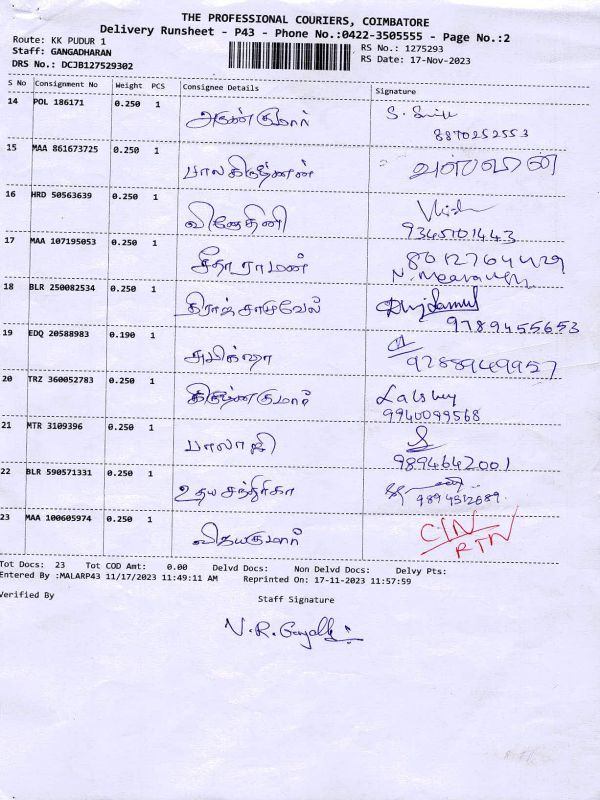 THE PROFESSIONAL COURIERS, COIMBATORE
Delivery Runsheet - P43 - Phone No.:0422-3505555 - Page No.:2
Route: KK PUDUR 1
RS No.: 1275293
Staff: GANGADHARAN
RS Date: 17-Nov-2023
DRS No.: DCJB127529302
S No Consignment No Weight PCS Consignee Details Signature
14 POL 186171 0.250 1 அருண்குமார்
8870252553
15 MAA 861673725 0.250 1 பாலகிருஷ்ணன்
16 HRD 50563639 0.250 1 வினோதினி
9345101443
17 MAA 107195053 0.250 1 சீதாராமன் 8012764429
18 BLR 250082534 0.250 1 கிராஜ்சாமுவேல்
9789455653
19 EDQ 20588983 0.190 1
9788949957
20 TRZ 360052783 0.250 1 கிருஷ்ணகுமார்
9940099568
21 MTR 3109396 0.250 1 பாலாஜி
9894642001
22 BLR 590571331 0.250 1 உதயசந்திரிகா
9894512689
23 MAA 100605974 0.250 1 விஜயகுமார் CIN
RTN
Tot Docs: 23 Tot COD Amt: 0.00 Delvd Docs: Non Delvd Docs: Delvy Pts:
Entered By :MALARP43 11/17/2023 11:49:11 AM Reprinted On: 17-11-2023 11:57:59
Verified By
Staff Signature